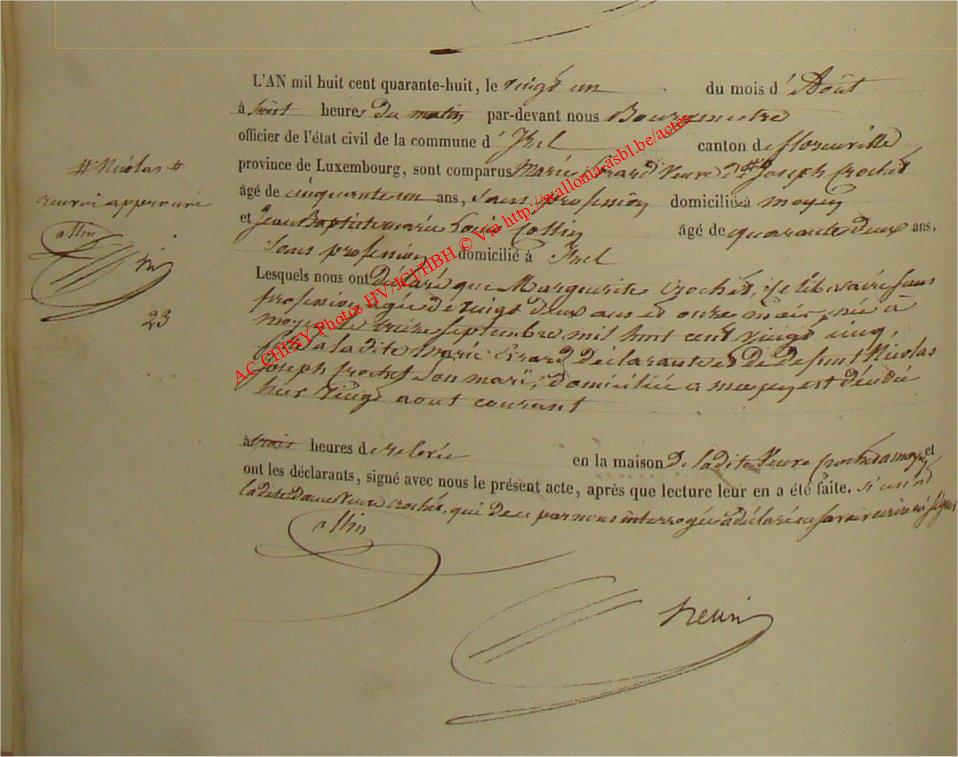 L'AN mil huit cent quarante-huit, le vingt un du mois d'Août
à huit heures du matin par-devant nous Bourgmestre
officier de l'état civil de la commune d'Izel canton de florenville
province de Luxembourg, sont comparus Marie Girard Veuve de # Joseph Crochet
âgé de cinquante un ans, Sans profession domicilié à moyen
et Jean Baptiste marie Louis Collin âgé de quarante deux ans,
Sans profession domicilié à Izel
Lesquels nous ont Déclaré que Marguerite Crochet, Célibataire sans
profession agée de vingt deux ans et onze mois, née à
moyen le treize septembre mil huit cent vingt cinq,
fille a la dite marie Girard Déclarante et de defunt Nicolas
Joseph Crochet Son mari, domiciliée a moyen est décédée
hier vingt aout courant
à trois heures de relevée en la maison de la dite Veuve Crochet a moyen et
ont les déclarants, signé avec nous le présent acte, après que lecture leur en a été faite. si non
la dite Dame Veuve Crochet, qui de ce par nous interrogée a déclaré ne savoir écrire ni signer
Collin
# Nicolas #
renvoi approuvé
Collin
23
AC CHINY Photos HV/JCI/HBH © Via http://wallonia-asbl.be/actes